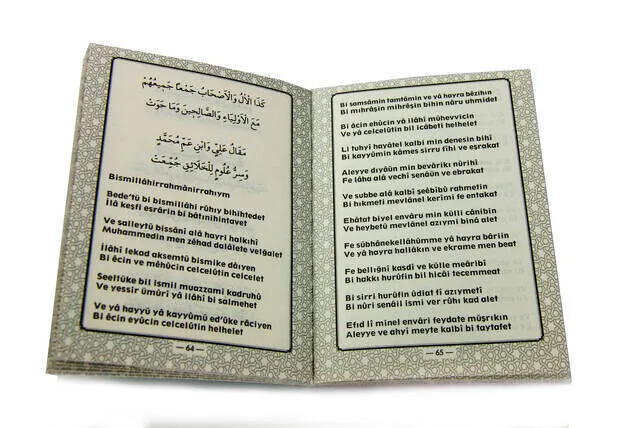 كَذَا الْاٰلُ وَالْاَصْحَابُ جَمْعًا جَمِيعُهُمْ
مَعَ الْاَوْلِيَاءِ وَالصَّالِحِينَ وَمَا حَوَتْ
مَقَالُ عَلِيٍّ وَابْنِ عَمِّ مُحَمَّدٍ
وَسِرُّ عُلُومٍ لِلْخَلَائِقِ جُمِّعَتْ
Bismillâhirrahmânirrahıym
Bede'tü bi bismillâhi rûhıy bihihtedet
İlâ keşfi esrârin bi bâtınihintavet
Ve salleytü bissâni alâ hayri halkıhî
Muhammedin men zêhad dalâlete velğalet
İlâhi lekad aksemtü bismike dâıyen
Bi êcin ve mêhûcin celcelûtin celcelet
Seeltüke bil ismil muazzami kadruhû
Ve yessir ümûrî yâ ilâhî bi salmehet
Ve yâ hayyü yâ kayyûmü ed'ûke râciyen
Bi êcin eyûcin celcelûtin helhelet
— 64 —
Bi samsâmin tamtâmin ve yâ hayra bêzihın
Bi mıhrâşin mihrêşin bihin nâru uhmidet
Bi êcin ehûcin yâ ilâhî mühevvicin
Ve yâ celcelûtin bil icâbeti helhelet
Li tuhyî hayâtel kalbi min denesin bihî
Bi kayyûmin kâmes sirru fîhi ve eşrakat
Aleyye dıyâün min bevârikı nûrihî
Fe lâha alâ vechî senâün ve ebrakat
Ve subbe alâ kalbî şeêbîbü rahmetin
Bi hıkmeti mevlânel kerîmi fe entakat
Ehâtat biyel envâru min külli cânibin
Ve heybetü mevlânel azıymi binâ alet
Fe sübhânekellâhümme yâ hayra bâriin
Ve yâ hayra hallâkın ve ekrame men beat
Fe bellığnî kasdî ve külle meâribî
Bi hakkı hurûfin bil hicâi tecemmeat
Bi sirri hurûfin ûdiat fî azıymetî
Bi nûri senâil ismi ver rûhı kad alet
Efıd lî minel envâri feydate müşrıkın
Aleyye ve ahyi meyte kalbî bi taytafet
— 65 —